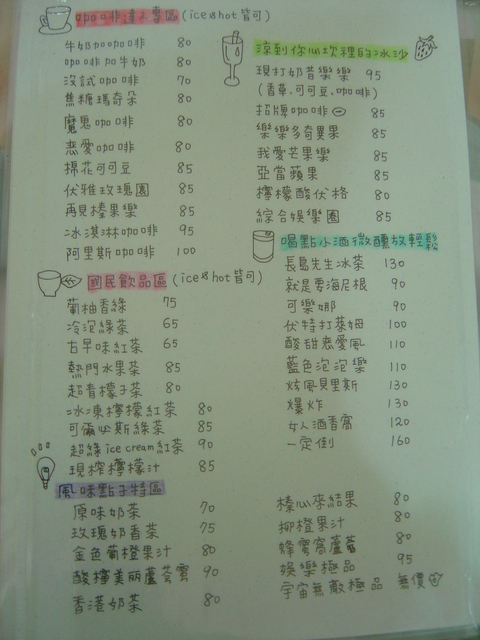 咖啡達人專區(ice或hot皆可)
牛奶加咖啡 80
咖啡加牛奶 80
沒試咖啡 70
焦糖瑪奇朵 80
魔鬼咖啡 80
戀愛咖啡 80
棉花可可豆 85
伏雅玫瑰園 85
再見榛果樂 85
冰淇淋咖啡 95
阿里斯咖啡 100
國民飲品區(ice或hot皆可)
葡柚香綠 75
冷泡綠茶 65
古早味紅茶 65
熱門水果茶 85
超青檬子茶 80
冰凍檸檬紅茶 80
可爾必斯綠茶 85
超綠ice cream紅茶 90
現榨檸檬汁 85
風味點子特區
原味奶茶 70
玫瑰奶香茶 75
金色葡橙果汁 80
酸檸美丽蘆荟露 90
香港奶茶 80
涼到你心坎裡的冰沙
現打奶昔樂樂 95
(香草.可可豆.咖啡)
招牌咖啡 85
樂樂多奇異果 85
我愛芒果樂 85
亞當蘋果 85
檸檬酸伏格 80
綜合娛樂園 85
喝點小酒微醺放輕鬆
長島先生冰茶 130
就是要海尼根 90
可樂娜 90
伏特打萊姆 100
酸甜戀愛風 110
藍色泡泡樂 110
炫風貝里斯 130
爆炸 130
女人酒香窩 120
一定倒 160
榛心來結果 80
柳橙果汁 80
蜂蜜窩蘆薈 80
娛樂極品 95
宇宙無敵極品 無價